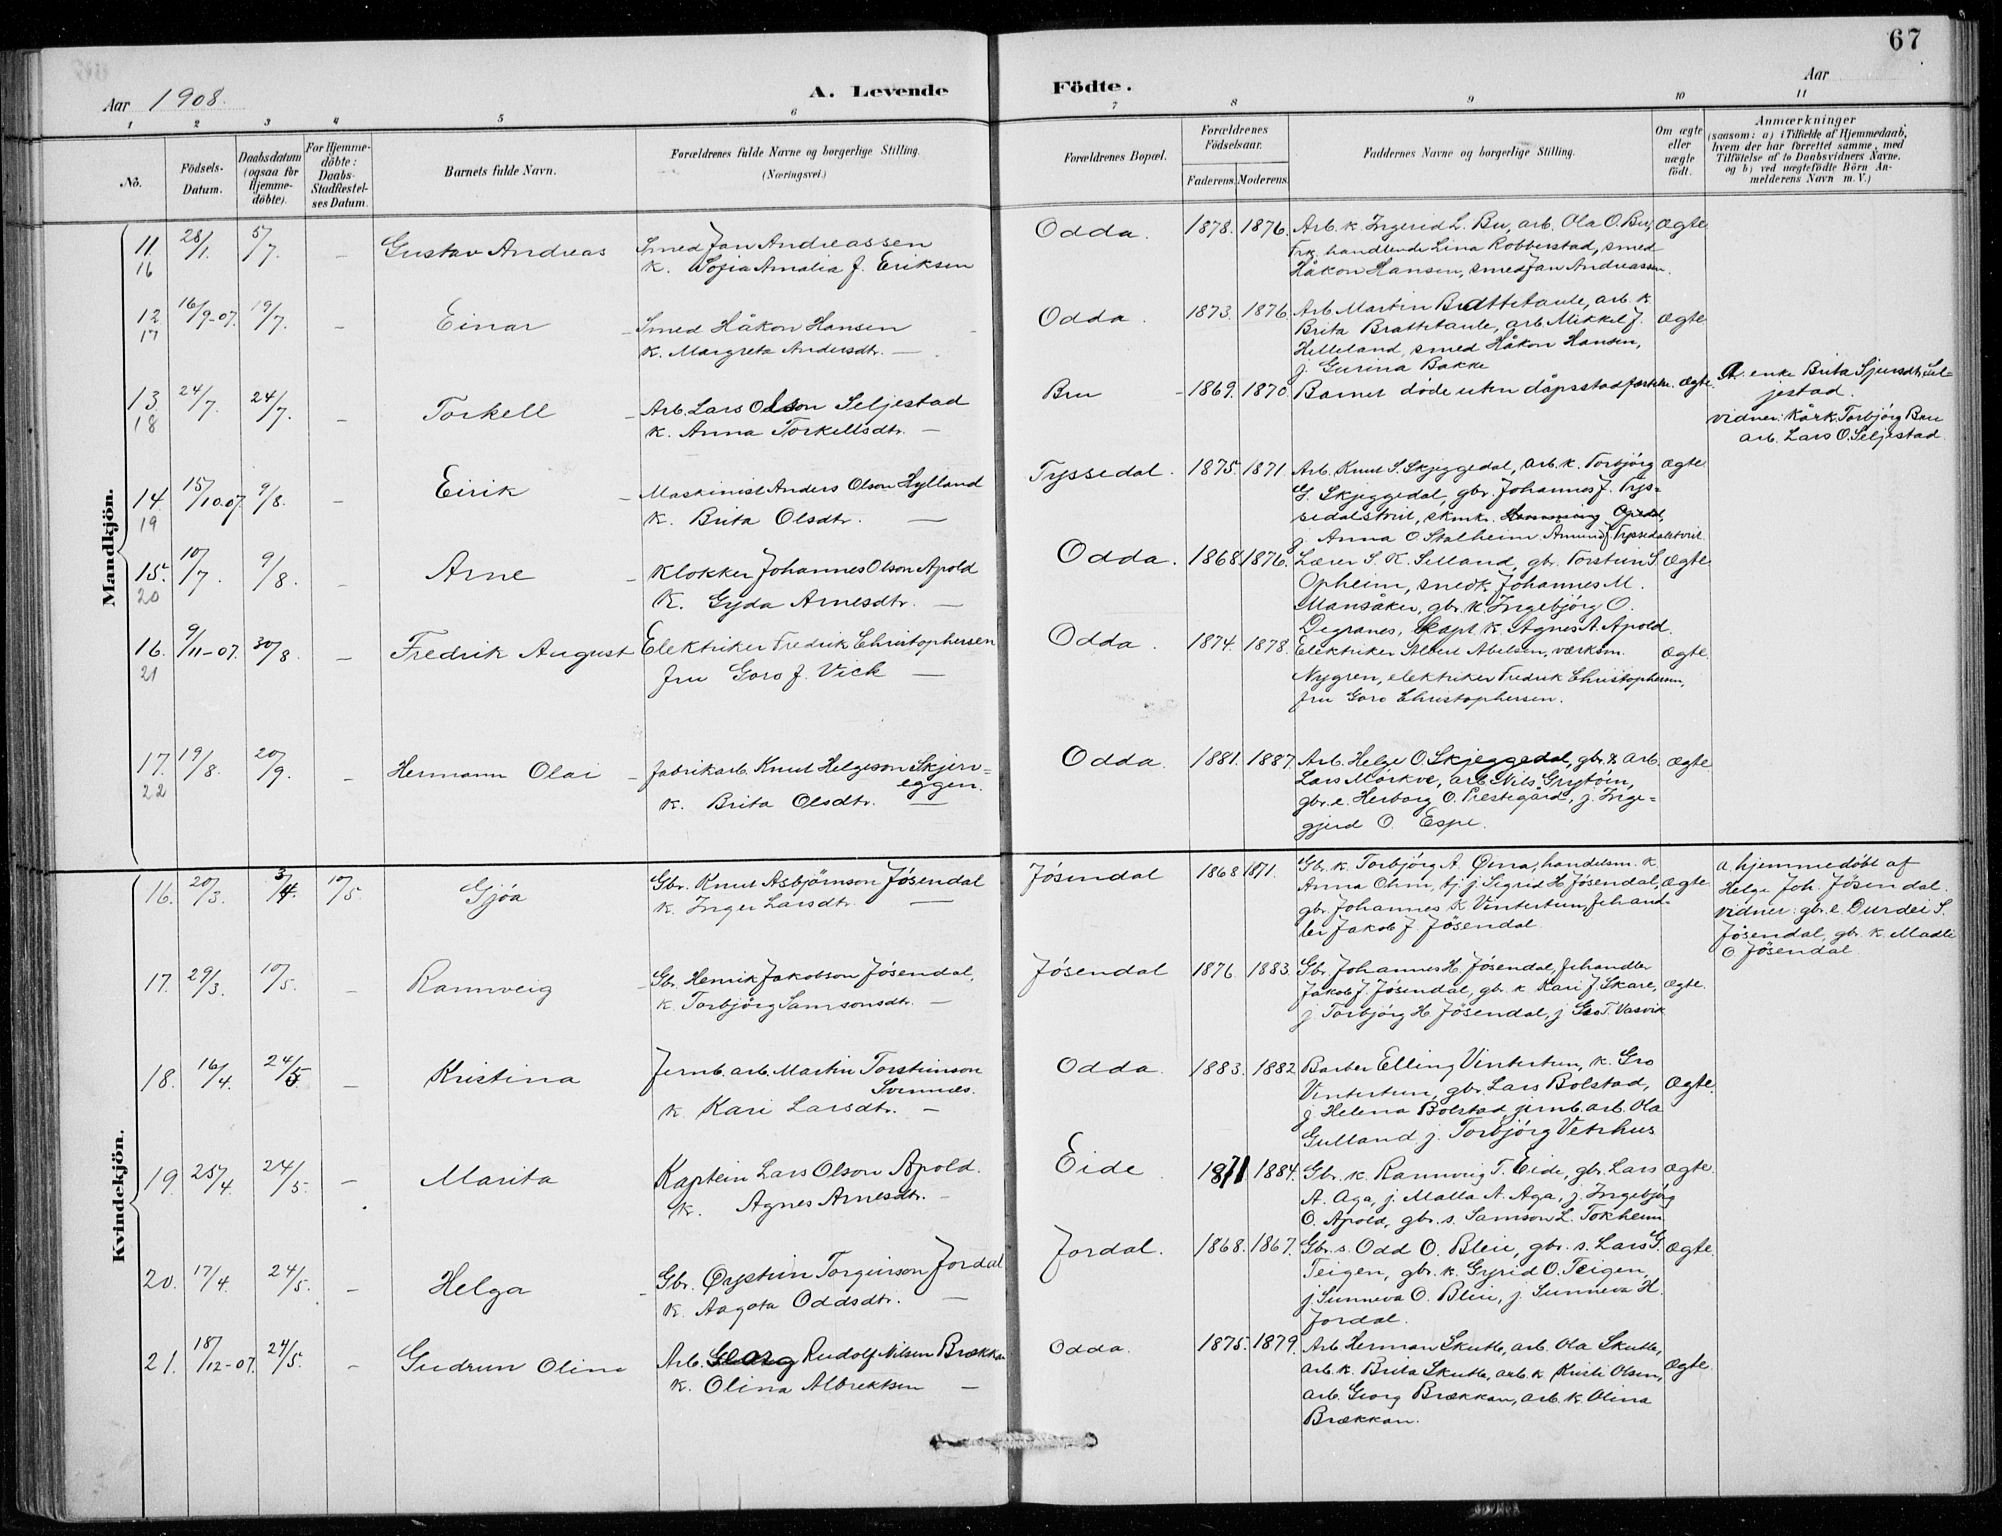 67
Aar 1908.
A. Levende Födte.
Aar
1 2 3 4 5 6 7 8 9 10 11
No.
Födsels-Datum.
Daabsdatum (ogsaa for Hjemme-döbte).
For Hjemme-döbte: Daabs-Stadfestel-ses Datum.
Barnets fulde Navn.
Forældrenes fulde Navne og borgerlige Stilling.
(Næringsvei.)
Forældrenes Bopæl.
Forældrenes Födselsaar.
Faderens. Moderens.
Faddernes Navne og borgerlige Stilling.
Om ægte eller uægte födt.
Anmærkninger
(saasom: a) i Tilfælde af Hjemmedaab,
hvem der har forrettet samme, med
Tilföielse af to Daabsvidners Navne.
og b) ved uægtefödte Börn An-
melderens Navn m. V.)
Mandkjön.
11. 16 28/1. 5/7. – Gustav Andreas
Smed Jan Andreassen
k. Sofia Amalia f. Eriksen
Odda. 1878. 1876.
Arb. k. Ingerid L. Bu, arb. Ola O. Bu,
Frk. handlende Lina Robberstad, smed
Håkon Hansen, smed Jan Andreassen.
Ægte
12 17 16/9-07. 19/7. – Einar
Smed Håkon Hansen
k. Margreta Andersdtr. —
Odda. 1873. 1876.
Arb. Martin Brattetaule, arb. k.
Brita Brattetaule, arb. Mikkel J.
Helleland, smed Håkon Hansen,
j. Gurina Bakke
Ægte
13 18 24/7. 24/7. – Torkell
Arb. Lars Olson Seljestad
k. Anna Torkellsdtr. —
Bru 1869. 1870.
Barnet döde utn dåpsstadfæstelse.
ægte
A. enke Brita Sjursdtr. Sel-
jestad.
vidner: Kårk. Torbjörg Bru
arb. Lars O. Seljestad
14 19 15/10.07. 9/8. – Eirik
Maskinist Anders Olson Hylland
k. Brita Olsdtr. —
Tyssedal. 1875. 1871.
Arb. Knut S. Skjeggedal, arb. k. Torbjörg
G. Skjeggedal, gbr. Johannes J. Tys-
sedalstvet, skmkr. Opedal,
j. Anna O. Stalheim Åmund J. Tyssedalstvet
ægte
15. 20 10/7. 9/8. – Arne
Klokker Johannes Olson Apold
K. Gyda Arnesdtr. —
Odda. 1868. 1876.
Lærer S. K. Selland, gbr. Torstein S.
Opheim, snedk. Johannes M.
Mansåker, gbr. k. Ingebjörg O.
Degranes, kapt. k. Agnes A. Apold.
Ægte
16. 21 9/11-07. 30/8. – Fredrik August
Elektriker Fredrik Christophersen
fru Goro f. Vick —
Odda. 1874. 1878.
Elektriker Albert Abelsen, værksm.
Nygren, elektriker Fredrik Christophersen,
fru Goro Christophersen.
ægte.
17. 22 19/8. 20/9. – Hermann Olai
fabrikarb. Knut Helgeson Skjerv-
eggen.
k. Brita Olsdtr. —
Odda. 1881. 1887.
Arb. Helge O. Skjeggedal, gbr. & arb.
Lars Mörkve, arb. Nils Grytöin,
gbr. e. Herborg O. Prestegård, j. Inge-
gjerd O. Espe.
ægte
Kvindekjön.
16. 20/3. 3/4. 10/5. Gjöa
Gbr. Knut Asbjörnson Jösendal
k. Inger Larsdtr. —
Jösendal 1868 1871.
Gbr. k. Torbjörg A. Öina, handelsm. k.
Anna Ohm, tj. j. Sigrid H. Jösendal,
gbr. Johannes K. Vintertun, fehand-
ler Jakob J. Jösendal
ægte
a. hjemmedöbt af
Helge Joh. Jösendal.
vidner: gbr. e. Durdei S.
Jösendal, gbr. k. Madli
O. Jösendal
17. 29/3. 10/5. – Rannveig
Gbr. Henrik Jakobson Jösendal,
k. Torbjörg Samsonsdtr. —
Jösendal 1876. 1883.
Gbr. Johannes H. Jösendal, fehandler
Jakob J. Jösendal, gbr. k. Kari J. Skare,
j. Torbjörg H. Jösendal, j. Gro T. Vasvik
ægte.
18. 16/4. 24/5 – Kristina
Jernb. arb. Martin Torsteinson
Svinnes.
k. Kari Larsdtr. —
Odda. 1883. 1882
Barber Elling Vintertun, k. Gro
Vintertun, gbr. Lars Bolstad,
j. Helena Bolstad, jernb. arb. Ola
Gulland j. Torbjörg Vetrhus
Ægte.
19. 25/4. 24/5. – Marita
Kaptein Lars Olson Apold.
k. Agnes Arnesdtr. —
Eide 1871 1884.
Gbr. k. Rannveig T. Eide, gbr. Lars
A. Aga, j. Malla A. Aga, j. Ingebjörg
O. Apold, gbr. s. Samson L. Tokheim
ægte.
20. 17/4. 24/5. – Helga
Gbr. Öystein Torgeirson Jordal
k. Aagota Oddsdtr. —
Jordal. 1868. 1867.
Gbr. s. Odd O. Bleie, gbr. s. Lars G.
Teigen, gbr. k. Gyrid O. Teigen,
j. Sunneva O. Bleie, j. Sunneva H.
Jordal.
ægte
21. 18/12-07. 24/5. – Gudrun Olina
Arb. Georg Rudolf Nilsen Brækkan
k. Olina Albrektsen —
Odda. 1875. 1879.
Arb. Herman Skutle, arb. Ola Skutle,
arb. k. Brita Skutle, arb. k. Kristi Olsen,
arb. Georg Brækkan, arb. k. Olina
Brækkan.
ægte